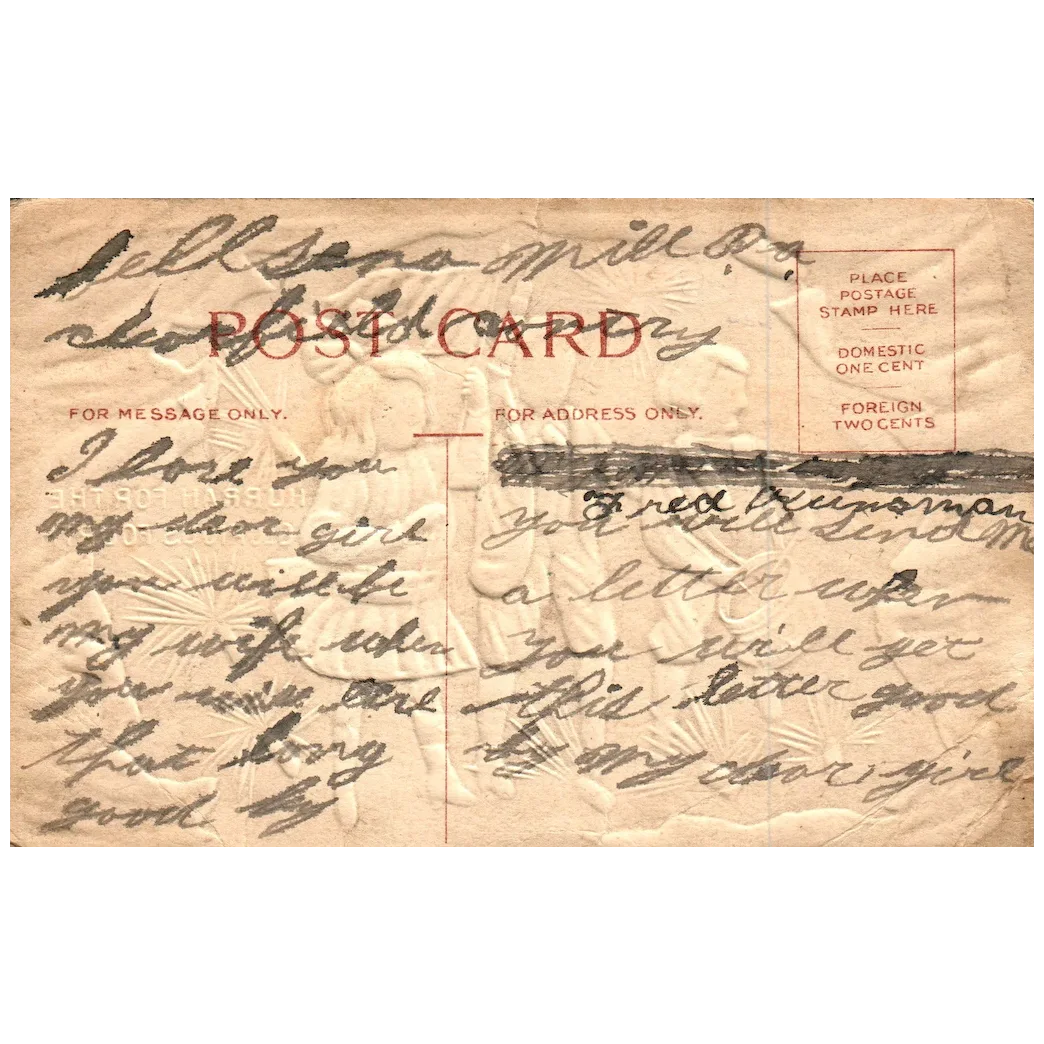 Mill Pa
county
POST CARD
PLACE
POSTAGE
STAMP HERE
DOMESTIC
ONE CENT
FOREIGN
TWO CENTS
FOR MESSAGE ONLY.
I love you
my dear girl
you will be
my wife when
you will
that long
good by
FOR ADDRESS ONLY.
Fred Kunsman
you will send me
a letter when
you will get
this letter good
by my dear girl
HURRAH FOR THE